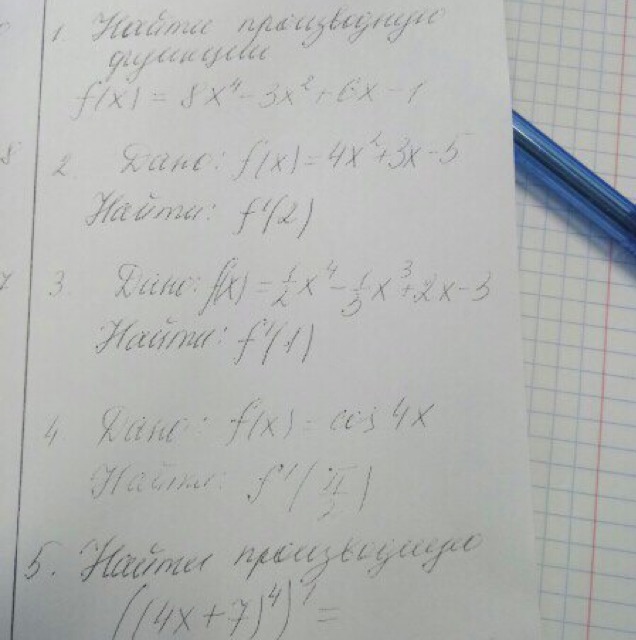 1. Найти производную
функции
f(x) = 8x⁴ - 3x² + 6x - 1
2. Дано: f(x) = 4x² + 3x - 5
Найти: f'(2)
3. Дано: f(x) = 1/2 x⁴ - 1/3 x³ + 2x - 3
Найти: f'(1)
4 Дано: f(x) = cos 4x
Найти: f'(π/2)
5. Найти производную
((4x + 7)⁴)' =